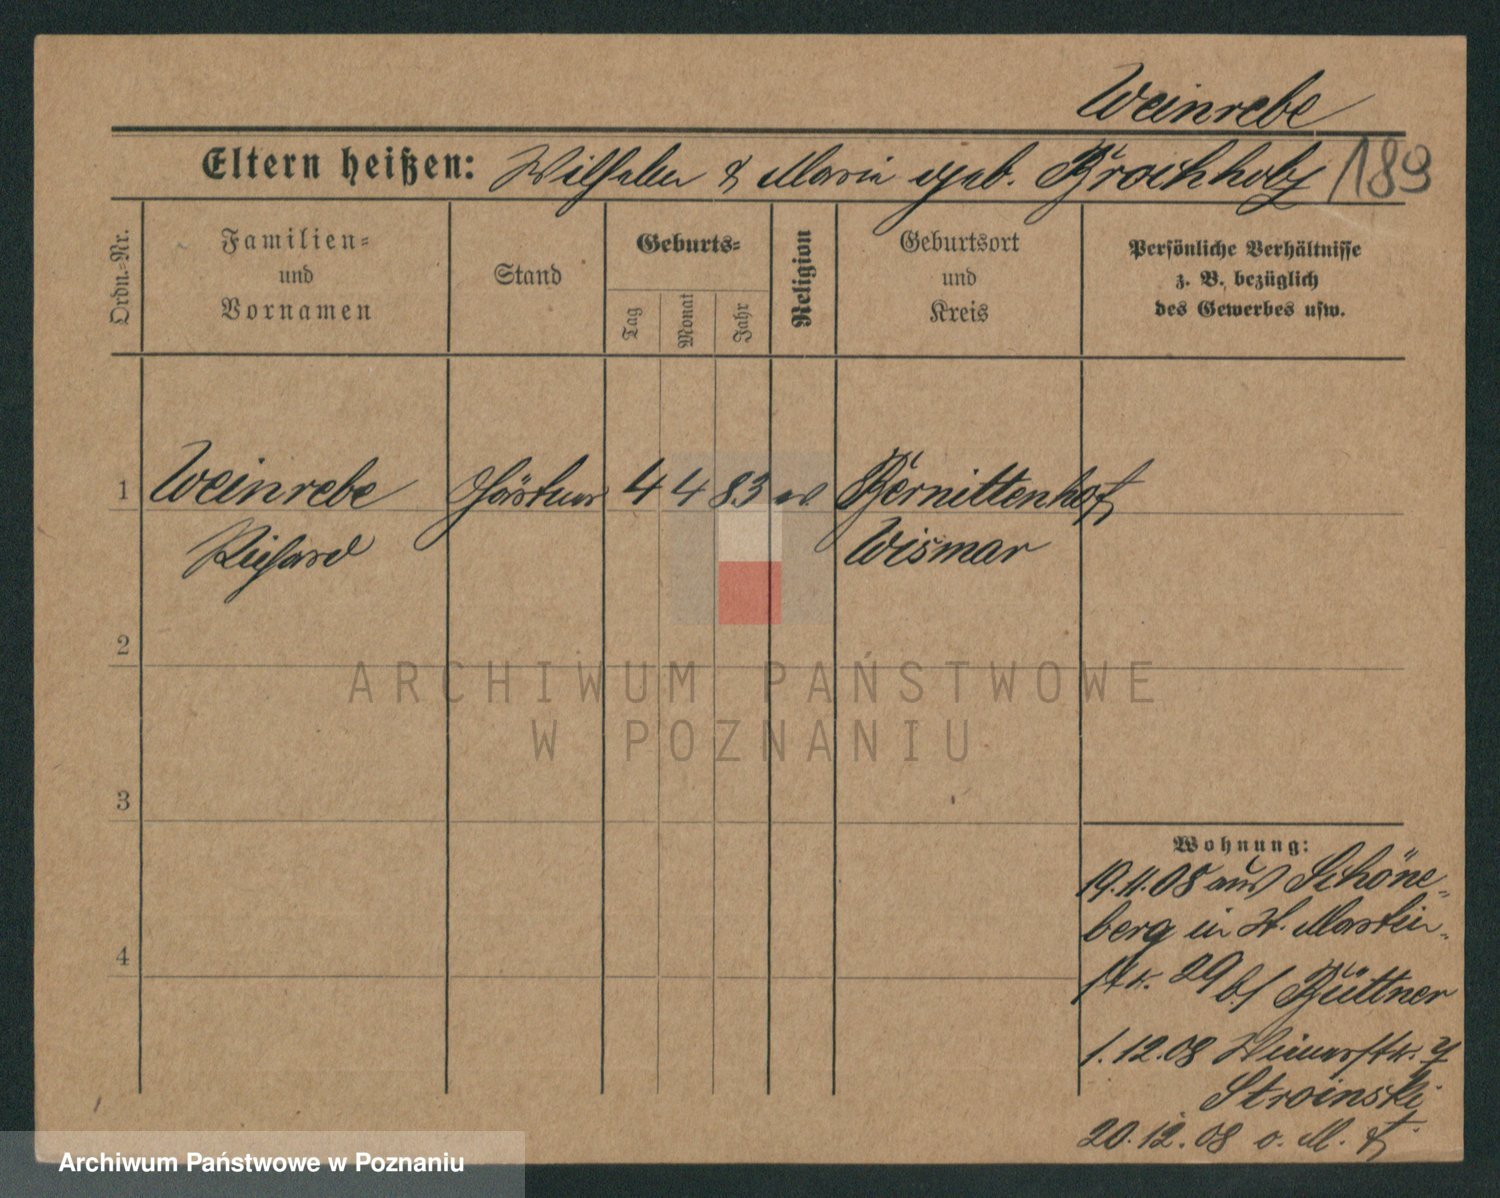 Weinrebe
Eltern heißen: Wilhelm & Marie geb. Brockholz 189
Ordn.-Nr.
Familien-
und
Vornamen
Stand
Geburts-
Tag
Monat
Jahr
Religion
Geburtsort
und
Kreis
Persönliche Verhältnisse
z. B. bezüglich
des Gewerbes usw.
1 Weinrebe 4 4 83 ev. Bernittenhof
Richard Wismar
2
3
4
Wohnung:
19.11.08 aus Schöne-
berg in St. Martin-
str. 29 b/ Büttner
1.12.08
Stroinski
20.12.08 o. M.
ARCHIWUM PAŃSTWOWE
W POZNANIU
Archiwum Państwowe w Poznaniu